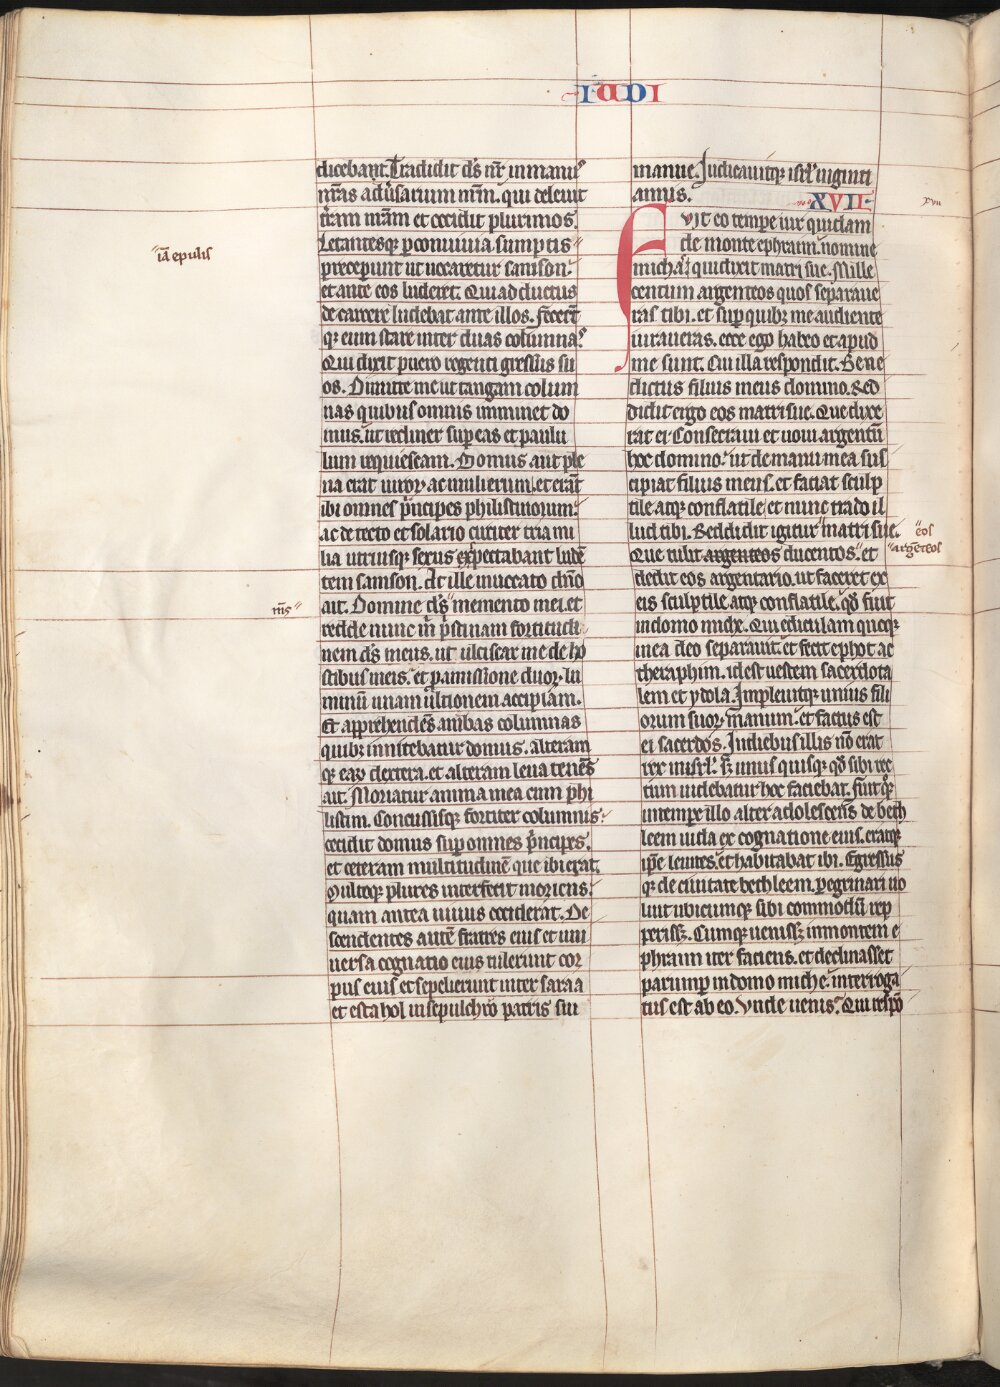 IUDI
dicebant. Tradidit ds nr in manus
nras aduersarium nrm. qui deleuit
tram nram et occidit plurimos.
Letantesq; per conuiuia sumptis
"iā epulis
preceperunt ut uocaretur samson.
et ante eos luderet. Qui adductus
de carcere ludebat ante illos. Fecerūt
q; eum stare inter duas columnas.
Qui dixit puero regenti gressus su
os. Dimitte me ut tangam colum
nas quibus omnis imminet do
mus. ut recliner sup eas et paulu
lum requiescam. Domus aut ple
na erat uiroꝝ ac mulierum. et erāt
ibi omnes pͥncipes philistinorum.
ac de tecto et solario circiter tria mi
lia utriusq; sexus expectabant ludē
tem samson. At ille inuocato dn̄o
ait. Domine ds" memento mei. et
ms̄"
redde nunc m̄ pͥstinam fortitudi
nem ds meus. ut ulciscar me de ho
stibus meis. et p amissione duoꝝ lu
minū unam ultionem accipiam.
Et apprehendēs ambas columnas
quibꝫ innitebatur domus. alteram
q; eaꝝ dextera. et alteram leua tenēs
ait. Moriatur anima mea cum phi
listim. Concussisq; fortiter columnis.
cecidit domus sup omnes pͥncipes.
et ceteram multitudinē que ibi erat.
Multoq; plures interfecit moriens.
quam antea uiuus occiderat. De
scendentes autē fratres eius et uni
uersa cognatio eius tulerunt cor
pus eius et sepelierunt inter saraa
et estahol in sepulchro patris sui
manue. Iudicauitq; isrl uiginti
annis.
XVII.
xvii
Fuit eo tempe uir quidam
de monte ephraim. nomine
michas. qui dixit matri sue. Mille
centum argenteos quos separaue
ras tibi. et sup quibꝫ me audiente
iuraueras. ecce ego habeo et apud
me sunt. Cui illa respondit. Bene
dictus filius meus domino. Red
didit ergo eos matri sue. Que dixe
rat ei. Consecraui et uoui argentū
hoc domino. ut de manu mea sus
cipiat filius meus. et faciat sculp
tile atq; conflatile. et nunc trado il
lud tibi. Reddidit igitur" matri sue.
"eos
Que tulit argenteos ducentos." et
"argēteos
dedit eos argentario. ut faceret ex
eis sculptile atq; conflatile. qd fuit
in domo miche. Qui ediculam quoq;
in ea deo separauit. et fecit ephot ac
theraphim. id est uestem sacerdota
lem et ydola. Impleuitq; unius fili
orum suoꝝ manum. et factus est
ei sacerdos. In diebus illis nō erat
rex in isrl. sꝫ unus quisq; qd sibi rec
tum uidebatur hoc faciebat. Fuit q̄ꝫ
in tempe illo alter adolescens de beth
leem iuda ex cognatione eius. eratq;
ipse leuites. et habitabat ibi. Egressus
q; de ciuitate bethleem. pegrinari uo
luit ubicumq; sibi commodū rep
perissꝫ. Cumq; uenissꝫ in montem e
phraim iter faciens. et declinasset
parump in domo miche. interroga
tus est ab eo. Unde uenis? Qui respō